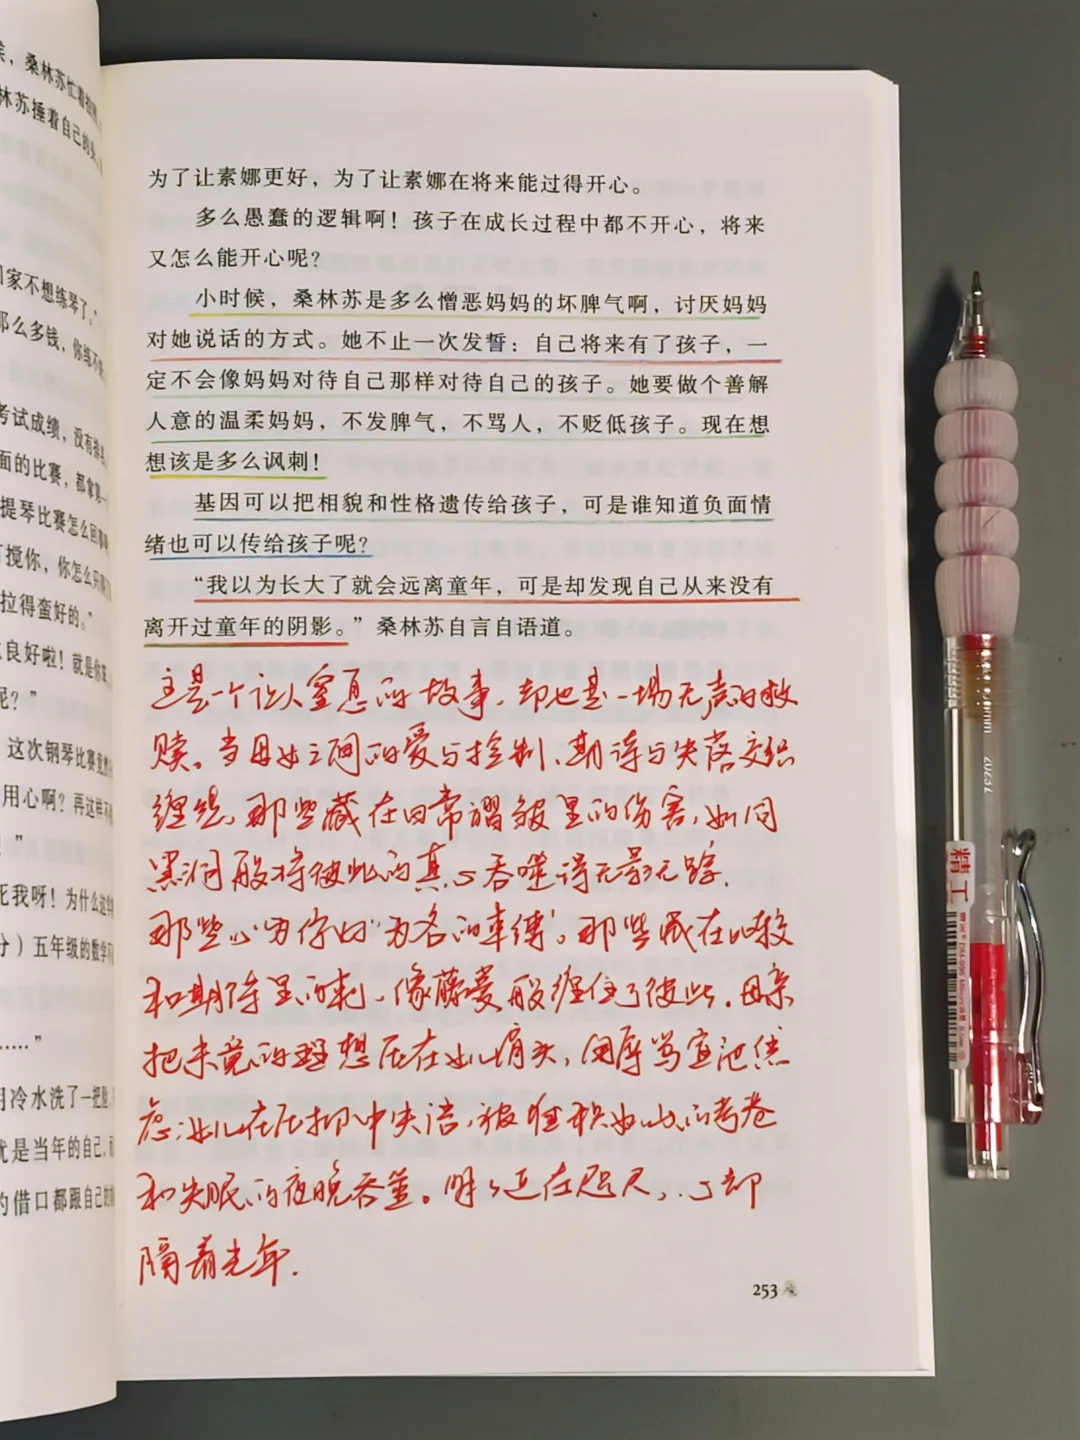 矣，桑林苏忙着
林苏捶着自己的头
回家不想练琴了。”
那么多钱，你练不
考试成绩，没有排名
面的比赛，都拿第一
提琴比赛怎么回事
打搅你，你怎么只
拉得蛮好的。”
良好啦！就是你
呢？”
这次钢琴比赛竟然
用心啊？再这样不
！”
死我呀！为什么这
分）五年级的数学不
……”
用冷水洗了一把脸
就是当年的自己，而
的借口都跟自己的
为了让素娜更好，为了让素娜在将来能过得开心。
多么愚蠢的逻辑啊！孩子在成长过程中都不开心，将来
又怎么能开心呢？
小时候，桑林苏是多么憎恶妈妈的坏脾气啊，讨厌妈妈
对她说话的方式。她不止一次发誓：自己将来有了孩子，一
定不会像妈妈对待自己那样对待自己的孩子。她要做个善解
人意的温柔妈妈，不发脾气，不骂人，不贬低孩子。现在想
想该是多么讽刺！
基因可以把相貌和性格遗传给孩子，可是谁知道负面情
绪也可以传给孩子呢？
“我以为长大了就会远离童年，可是却发现自己从来没有
离开过童年的阴影。”桑林苏自言自语道。
这是一个让人窒息的故事，却也是一场无声的救
赎。当母女之间的爱与控制、期待与失落交织
缠绕，那些藏在日常褶皱里的伤害，如同
黑洞般将彼此的真心吞噬得无影无踪．
那些以“为你好”为名的束缚。那些藏在比较
和期待里的刺，像藤蔓般缠住了彼此．母亲
把未竟的理想压在女儿肩头，用辱骂宣泄焦
虑；女儿在压抑中失语，被堆积如山的考卷
和失眠的夜晚吞噬。明明近在咫尺，心却
隔着光年．
253
精工